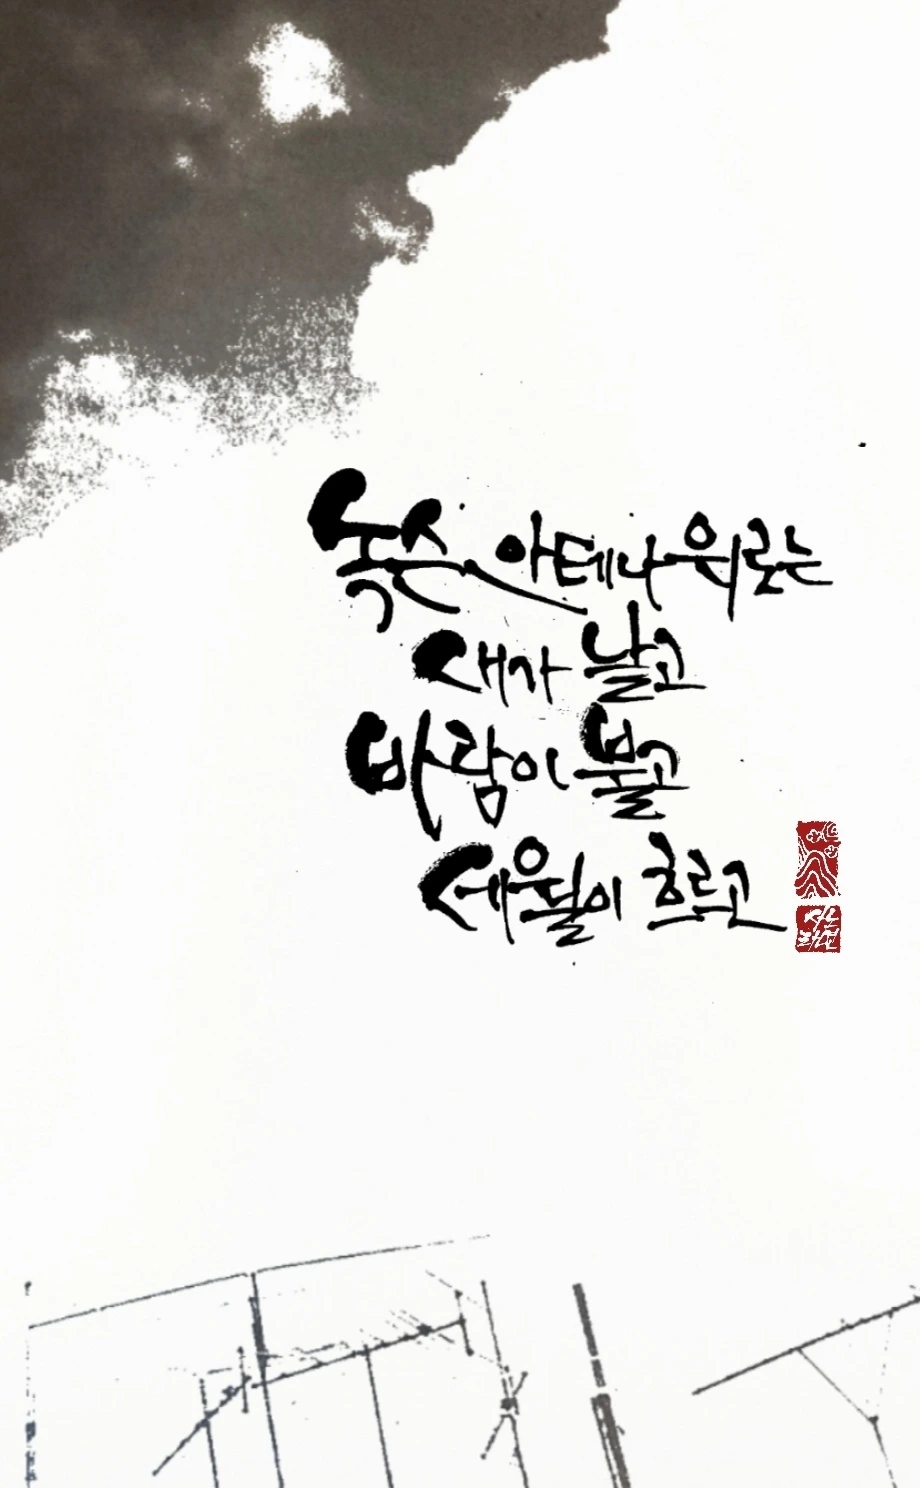 녹슨 안테나 위로는
새가 날고
바람이 불고
세월이 흐르고